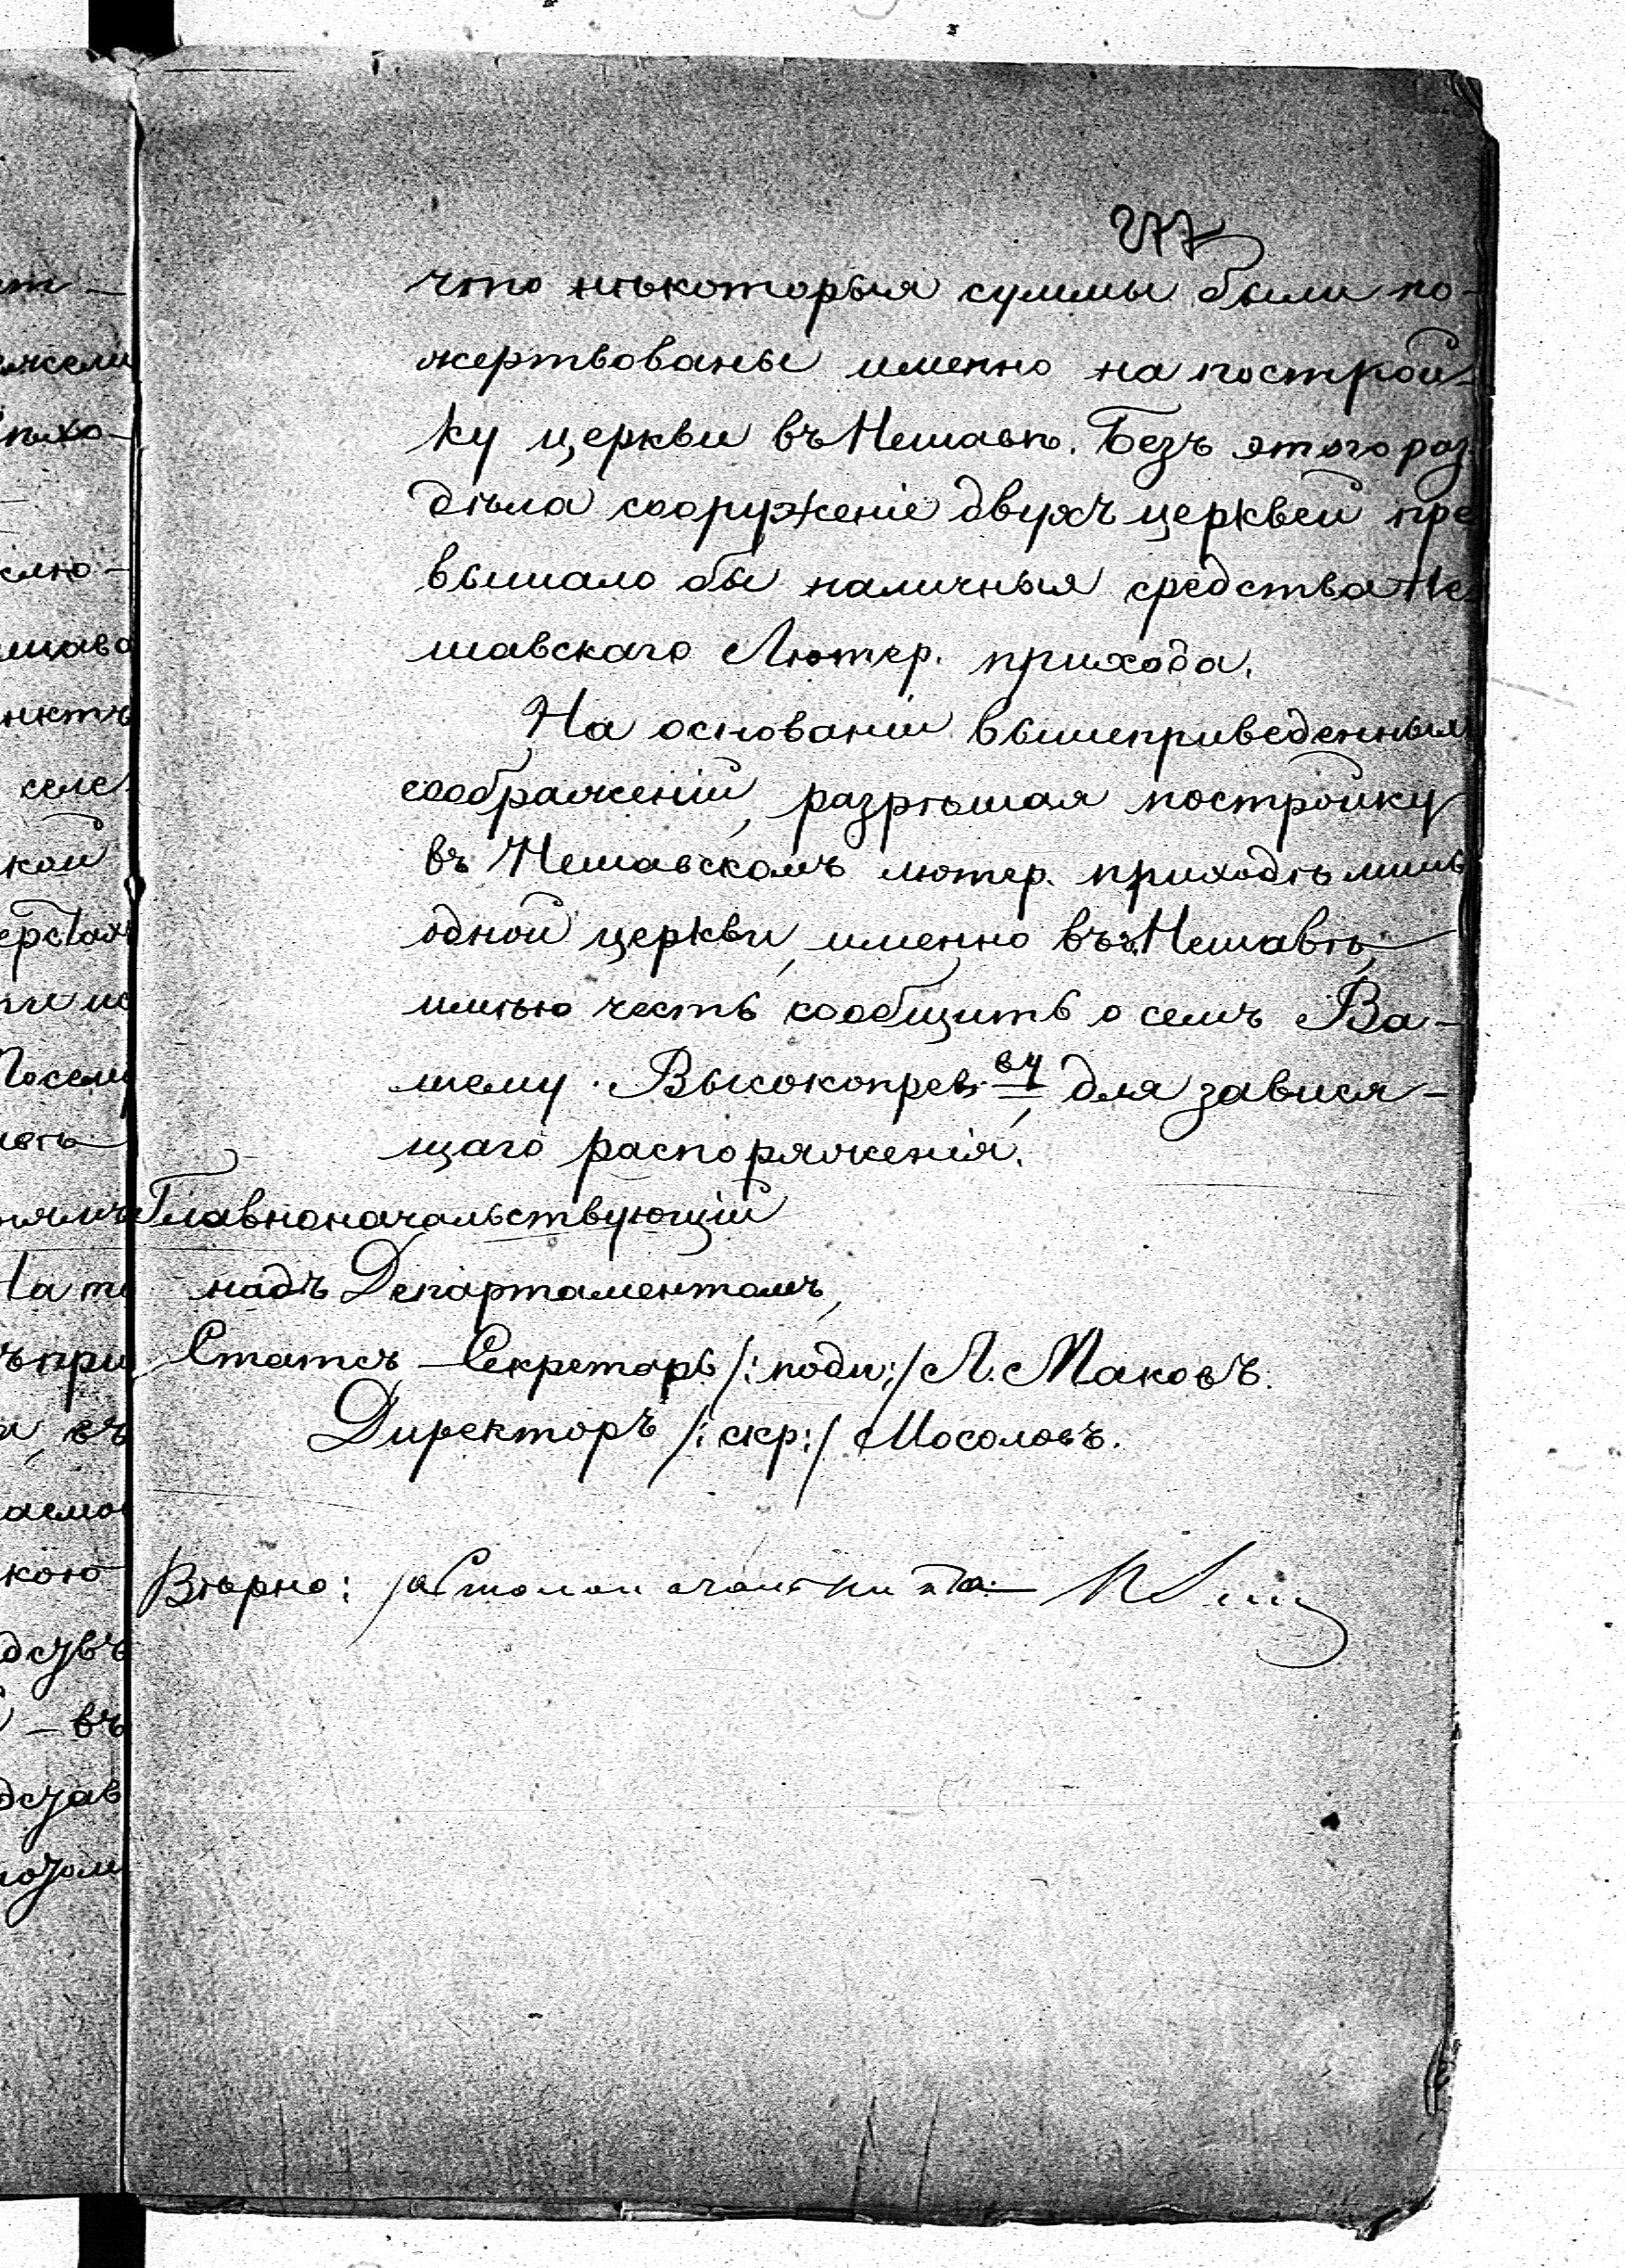 277
что нѣкоторыя суммы были по-
жертвованы именно на построй-
ку церкви въ Нешавѣ. Безъ этого раз-
дѣла сооруженіе двухъ церквей пре
вышало бы наличныя средства Не-
шавскаго Лютер. прихода.
На основаніи вышеприведенныхъ
соображеній, разрѣшая постройку
въ Нешавскомъ лютер. приходѣ лишь
одной церкви, именно въ Нешавѣ,
имѣю честь сообщить о семъ Ва-
шему Высокопрев-ву, для завися-
щаго распоряженія.
Главноначальствующій
надъ Департаментомъ,
Статсъ-Секретарь /:подп:/ Л. Маковъ.
Директоръ /:скр:/ Мосоловъ.
Вѣрно: за Столоначальника